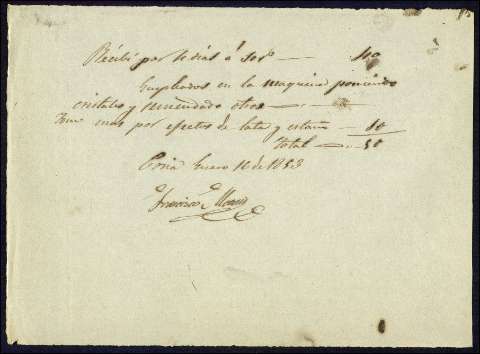 Recibí por 10 dias á 4 rs — 40
Empleados en la maquina poniendo
cristales y remendado otros —
Ittem mas por efectos de lata y estaño — 10
Total — 50
Coria Enero 16 de 1853
Francisco